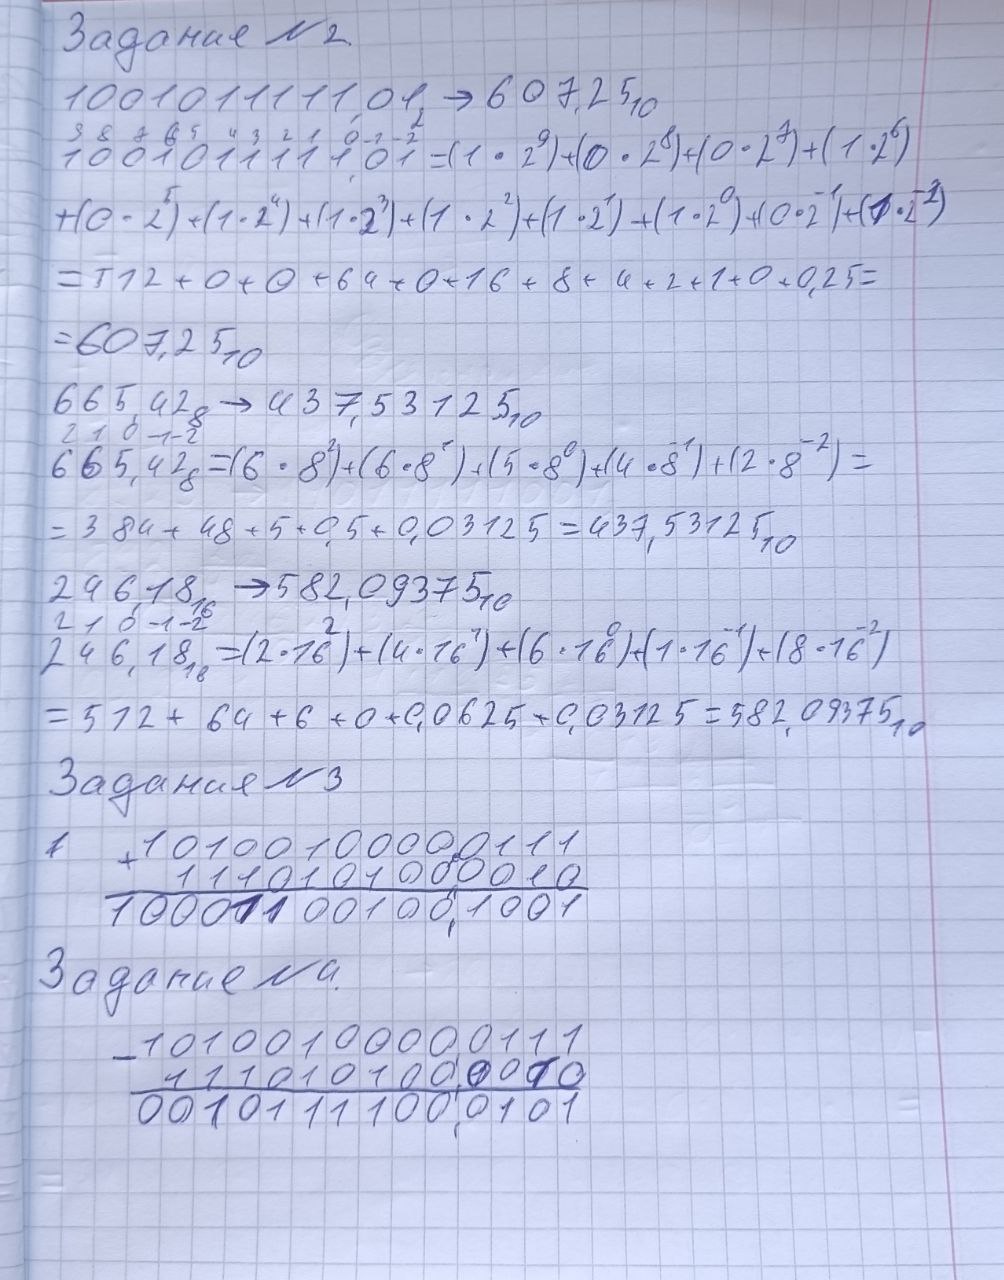 Задание №2
1001011111,01₂ → 607,25₁₀
9 8 7 6 5 4 3 2 1 0 -1 -2
1001011111,01 = (1·2⁹)+(0·2⁸)+(0·2⁷)+(1·2⁶)
+(0·2⁵)+(1·2⁴)+(1·2³)+(1·2²)+(1·2¹)+(1·2⁰)+(0·2⁻¹)+(1·2⁻²)
=512+0+0+64+0+16+8+4+2+1+0+0,25=
=607,25₁₀
665,42₈ → 437,53125₁₀
2 1 0 -1 -2
665,42₈=(6·8²)+(6·8¹)+(5·8⁰)+(4·8⁻¹)+(2·8⁻²)=
=384+48+5+0,5+0,03125=437,53125₁₀
246,18₁₆ → 582,09375₁₀
2 1 0 -1 -2
246,18₁₆=(2·16²)+(4·16¹)+(6·16⁰)+(1·16⁻¹)+(8·16⁻²)
=512+64+6+0+0,0625+0,03125=582,09375₁₀
Задание №3
1 +10100100000,0111
111010100,0010
10001100100,1001
Задание №4.
-10100100000,0111
111010100,0010
00101111100,0101